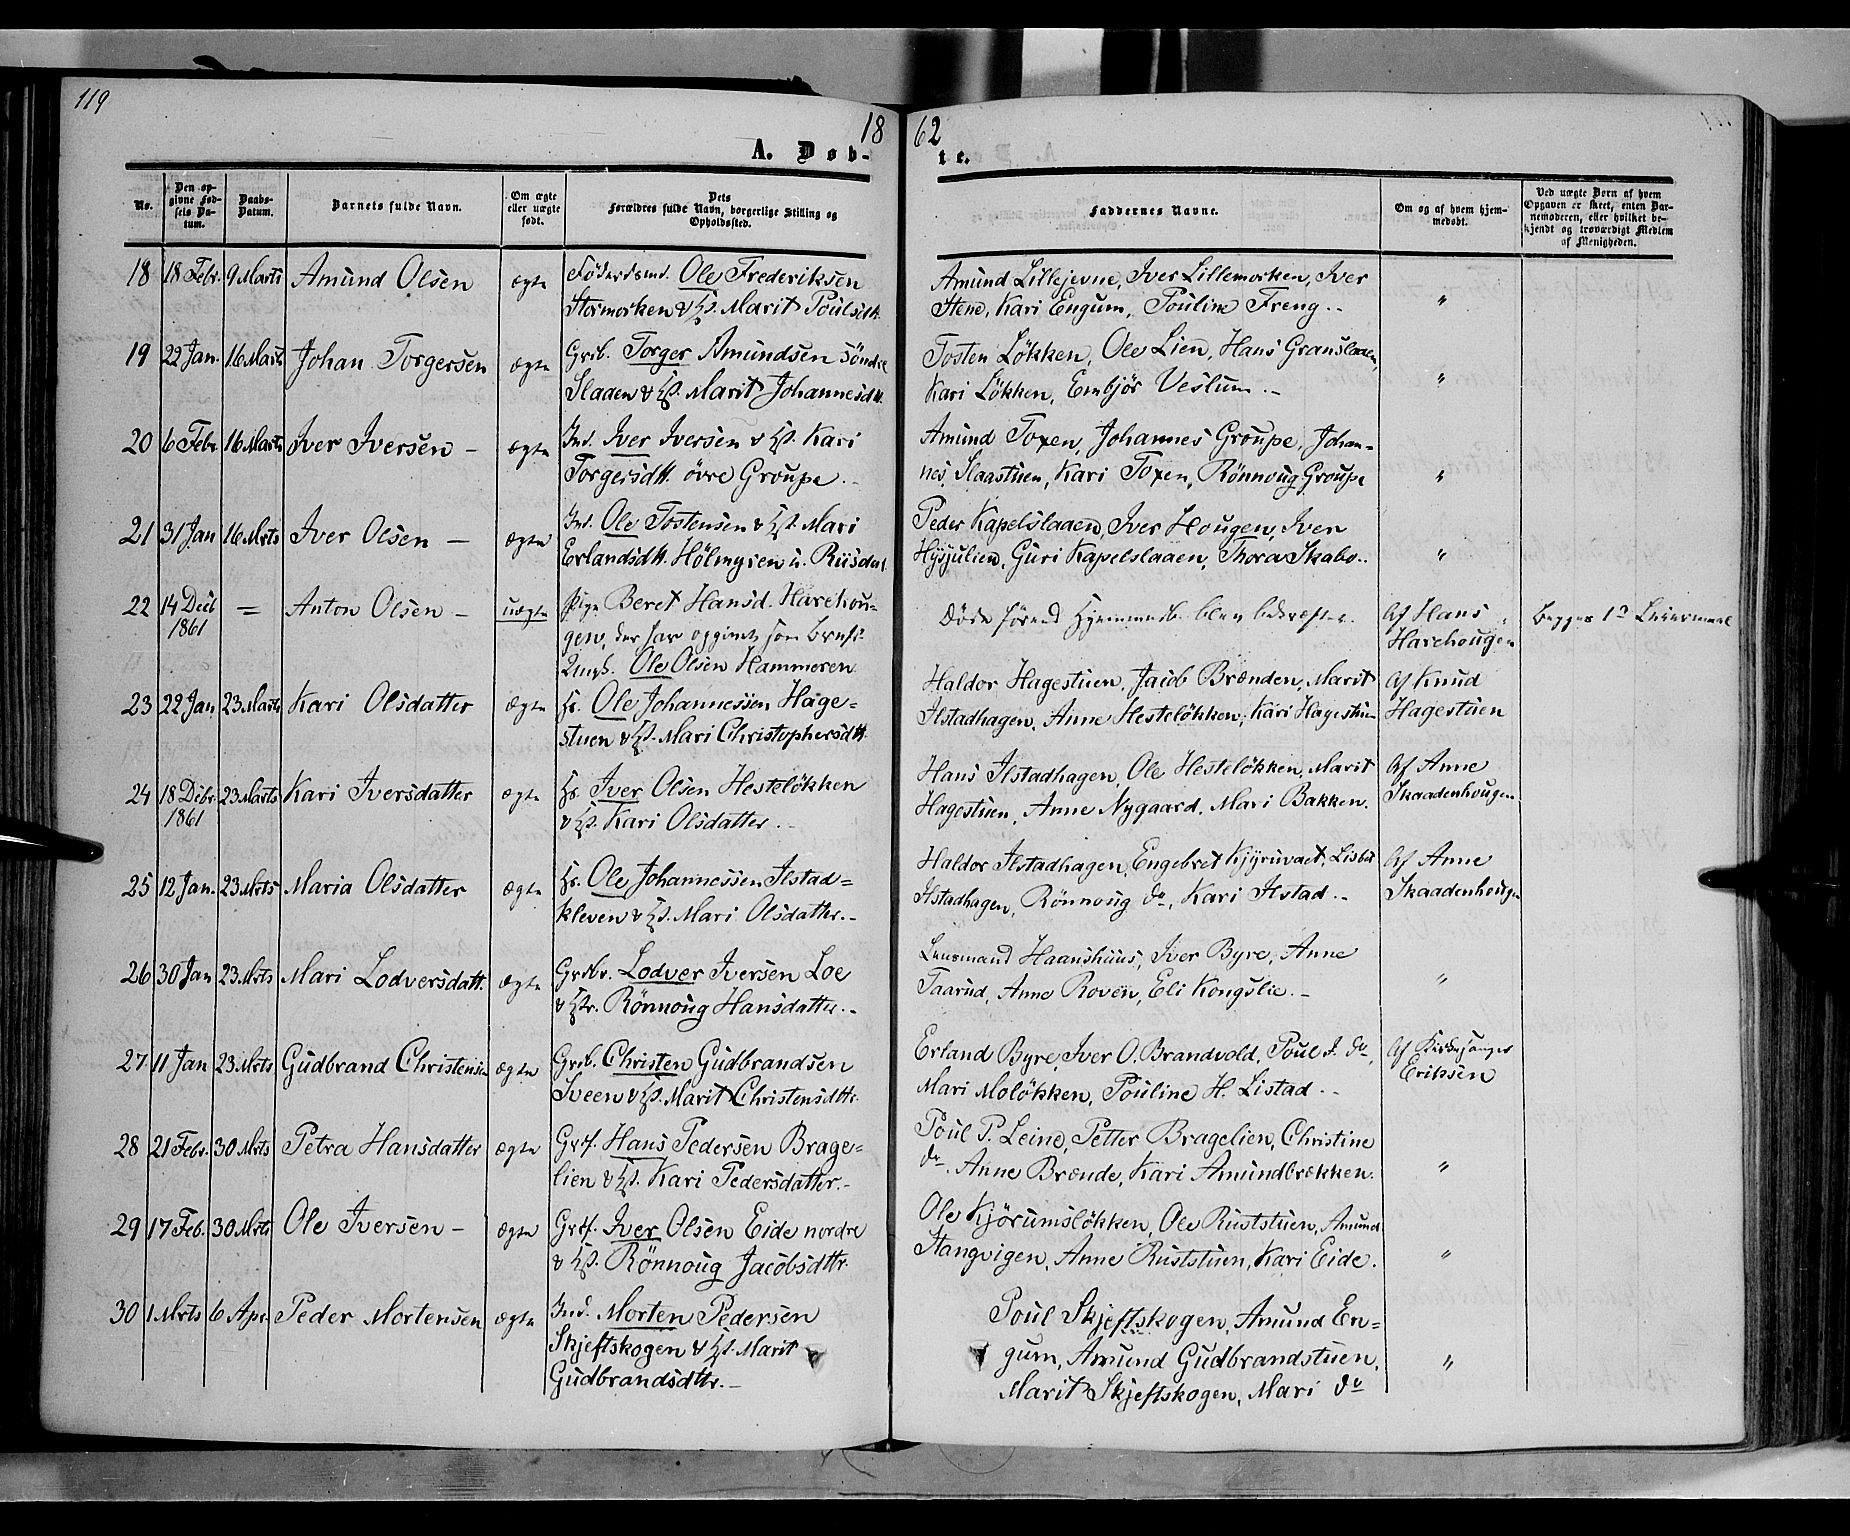 119
18 62
A. Døb- te.
No.
Den opgivne Fødsels Datum.
Daabs-Datum.
Barnets fulde Navn.
Om ægte eller uægte født.
Dets Forældres fulde Navn, borgerlige Stilling og Opholdssted.
Faddernes Navne.
Om og af hvem hjemmedøbt.
Ved uægte Børn af hvem Opgaven er skeet, enten Barnemoderen, eller hvilket bekjendt og troværdigt Medlem af Menigheden.
18 18 Febr. 9 Marts Amund Olsen ægte Ole Frederiksen
Stormorken & Marit Poulsdtt.
Amund Lillejevne, Iver Lillemorken, Iver
Stene, Kari Engum, Pouline Freng. - "
19 22 Jan. 16 Marts Johan Torgersen ægte Grb. Torger Amundsen söndre
Slaaen & Marit Johannesdtt.
Tosten Løkken, Ole Lien, Hans Granslaaen,
Kari Løkken, Embjör Veslum. - "
20 6 Febr 16 Marts Iver Iversen - ægte Ind. Iver Iversen & Kari
Torgersdtt. övre Groupe. -
Amund Toxen, Johannes Groupe, Johan=
nes Slaastuen, Kari Toxen, Rönnoug Groupe "
21 31 Jan 16 Mrts Iver Olsen - ægte Ind. Ole Tostensen & Mari
Erlandsdtt. Hölmyren u. Ruisdal
Peder Kapelslaaen, Iver Hougen, Iver
Hysjulien, Guri Kapelslaaen, Thora Skabo. - "
22 14 Decb 1861 = Anton Olsen - uægte Pige Beret Hansd. Harehou=
gen, der har opgivet som Barnef.
Ungk. Ole Olsen Hammeren
Døde førend Hjemmedb. blev bekræftet.
Af Hans
Harehougen
Begges 1ste Leiermaal
23 22 Jan 23 Marts Kari Olsdatter ægte Ole Johannessen Hage=
stuen & Mari Christophersdtt.
Haldor Hagestuen, Jacob Brænden, Marit
Ilstadhagen, Anne Hesteløkken, Kari Hagestuen
Af Knud
Hagestuen
24 18 Dcbr 1861 23 Marts Kari Iversdatter ægte Iver Olsen Hesteløkken
& Kari Olsdatter. -
Hans Ilstadhagen, Ole Hesteløkken, Marit
Hagestuen, Anne Nygaard, Mari Bakken.
Af Anne
Skaadenhougen
25 12 Jan. 23 Mrts Maria Olsdatter ægte Ole Johannessen Ilstad=
kleven & Mari Olsdatter. -
Haldor Ilstadhagen, Engebret Kjyruvaet, Lisbet
Ilstadhagen, Rönnoug do, Kari Ilstad. -
Af Anne
Skaadenhougen
26 30 Jan 23 Mrts Mari Lodversdatt. ægte Grdbr. Lodver Iversen Loe
& Rönnoug Hansdatter. -
Lensmand Haanshuus, Iver Byre, Anne
Taarud, Anne Roven, Eli Kongslie. - "
27 11 Jan 23 Mrts Gudbrand Christensen ægte Grb. Christen Gudbrandsen
Sveen & Marit Christensdttr.
Erland Byre, Iver O. Brandvold, Poul J. do,
Mari Moløkken, Pouline H. Listad. -
Af Kirkesanger
Eriksen
28 21 Febr. 30 Mrts Petra Hansdatter ægte Grf. Hans Pedersen Brage=
lien & Kari Pedersdatter. -
Poul P. Leine, Petter Bragelien, Christine
do. Anne Brænde, Kari Amundbrækken. "
29 17 Feb. 30 Mrts Ole Iversen - ægte Grf. Iver Olsen Eide nordre
& Rönnoug Jacobsdttr.
Ole Kjörumsløkken, Ole Ruststuen, Amund
Stangvigen, Anne Ruststuen, Kari Eide. "
30 1 Mrts 6 Apr Peder Mortensen ægte Ind. Morten Pedersen
Skjeftskogen & Marit
Gudbrandsdttr. -
Poul Skjeftskogen, Amund En=
gum, Amund Gudbrandstuen,
Marit Skjeftskogen, Mari do "